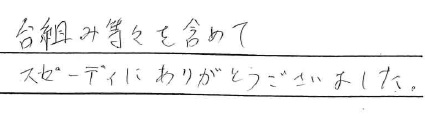 台組み等々を含めて
スピーディにありがとうございました。